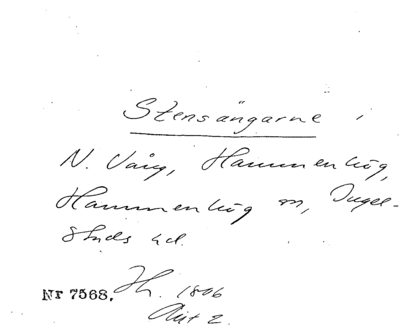 Stensängarne i
N. Vång, Hammenhög,
Hammenhög sn, Ingel-
stads hd.
Nr 7568. Hh. 1806
Akt 2.